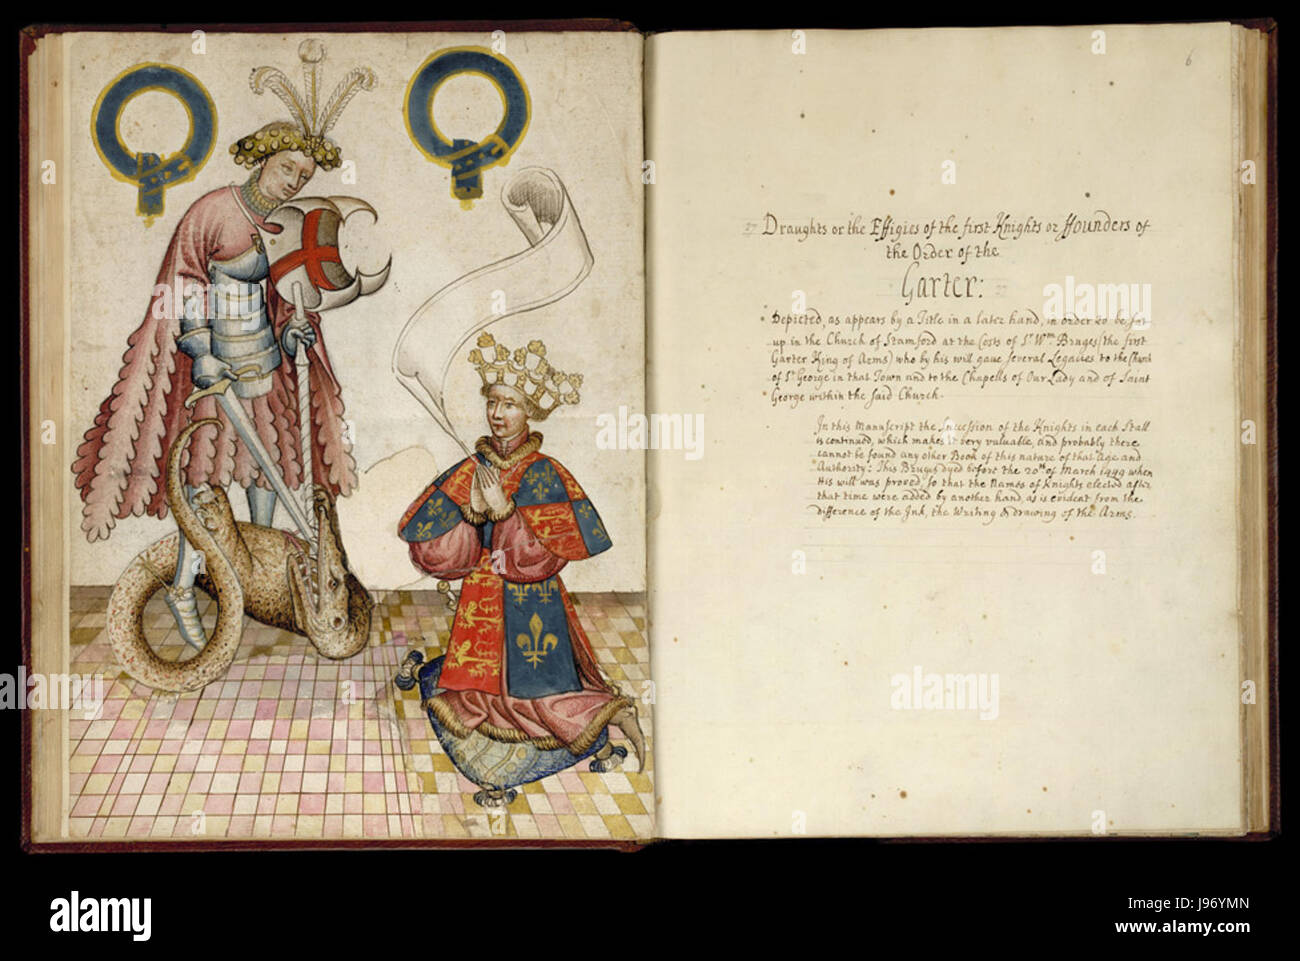 6
Draughts or the Effigies of the first Knights or Founders of
the Order of the
Garter:
Depicted, as appears by a Title in a later hand, in order to be set
up in the Church of Stamford at the Costs of Sr. Wm. Bruges (the first
Garter King of Arms) who by his will gave several Legacies to the Church
of St. George in that Town and to the Chapells of Our Lady and of Saint
George within the said Church.
In this Manuscript the Succession of the Knights in each Stall
is continued, which makes it very valuable, and probably there
cannot be found any other Book of this nature of that Age and
Authority: This Bruges dyed before the 20th of March 1449 when
His will was proved, so that the Names of Knights elected after
that time were added by another hand, as is evident from the
difference of the Ink, the Writing & drawing of the Arms.
alamy
Image ID: J96YMN
www.alamy.com